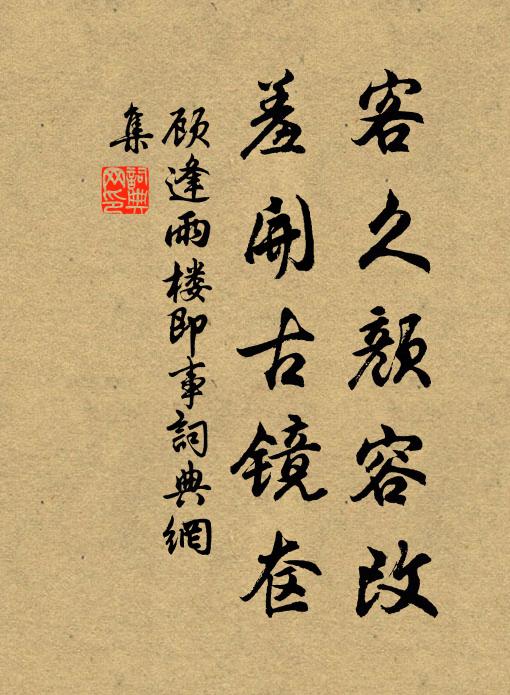 客久颜容改
羞开古镜奁
顾逢雨楼即事詞典網
集
詞典
网印